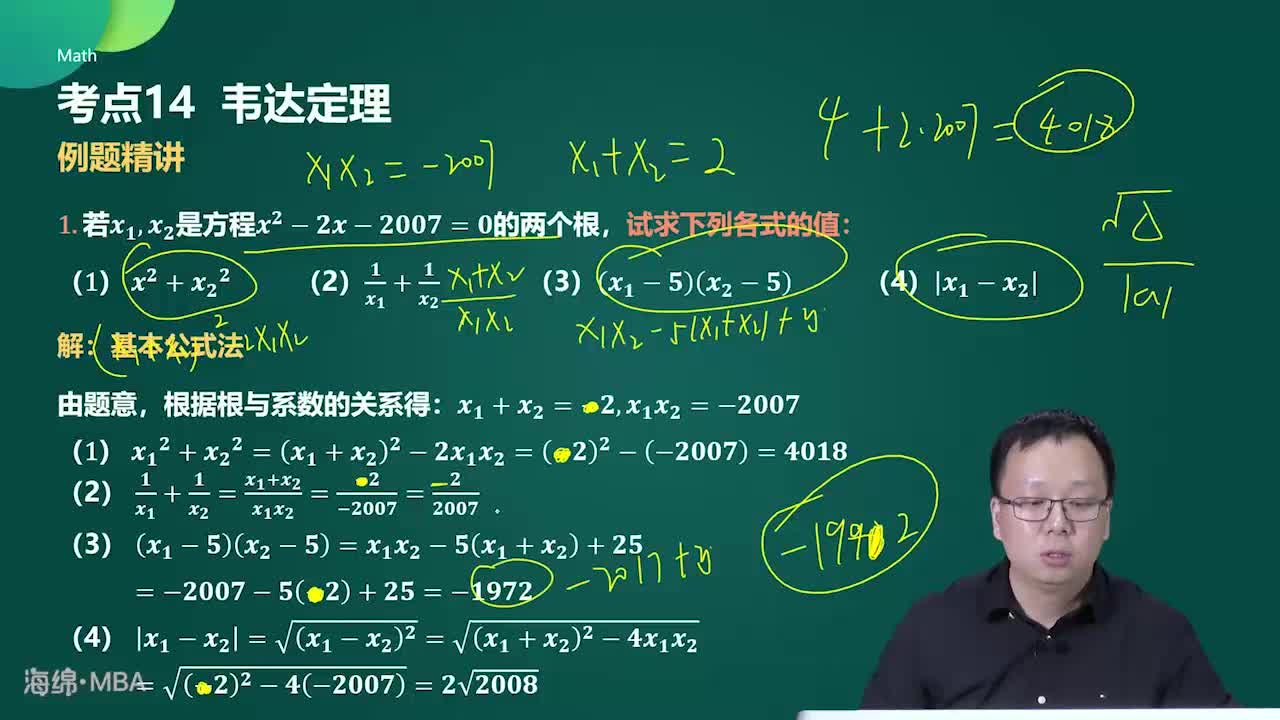 Math
考点14 韦达定理
例题精讲
x₁x₂ = -2007
x₁+x₂ = 2
4+2·2007 = 4018
1. 若x₁, x₂是方程x² − 2x − 2007 = 0的两个根，试求下列各式的值：
√Δ/|a|
（1） x² + x₂² （2） 1/x₁ + 1/x₂ （3） (x₁ − 5)(x₂ − 5) （4） |x₁ − x₂|
x₁+x₂/x₁x₂
x₁x₂ - 5(x₁+x₂) + 
2x₁x₂
解：基本公式法
由题意，根据根与系数的关系得：x₁ + x₂ = 2, x₁x₂ = −2007
（1） x₁² + x₂² = (x₁ + x₂)² − 2x₁x₂ = (2)² − (−2007) = 4018
（2） 1/x₁ + 1/x₂ = x₁+x₂/x₁x₂ = 2/−2007 = −2/2007 .
（3） (x₁ − 5)(x₂ − 5) = x₁x₂ − 5(x₁ + x₂) + 25
= −2007 − 5(2) + 25 = −1972
-2017+
-1992
（4） |x₁ − x₂| = √(x₁ − x₂)² = √(x₁ + x₂)² − 4x₁x₂
= √(2)² − 4(−2007) = 2√2008
海绵·MBA